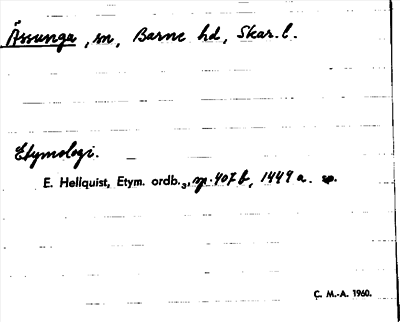 Åssunga, sn, Barne hd, Skar. l.
Etymologi.
E. Hellquist, Etym. ordb.₃, sp. 407 b, 1449 a. sp.
C. M.-A. 1960.